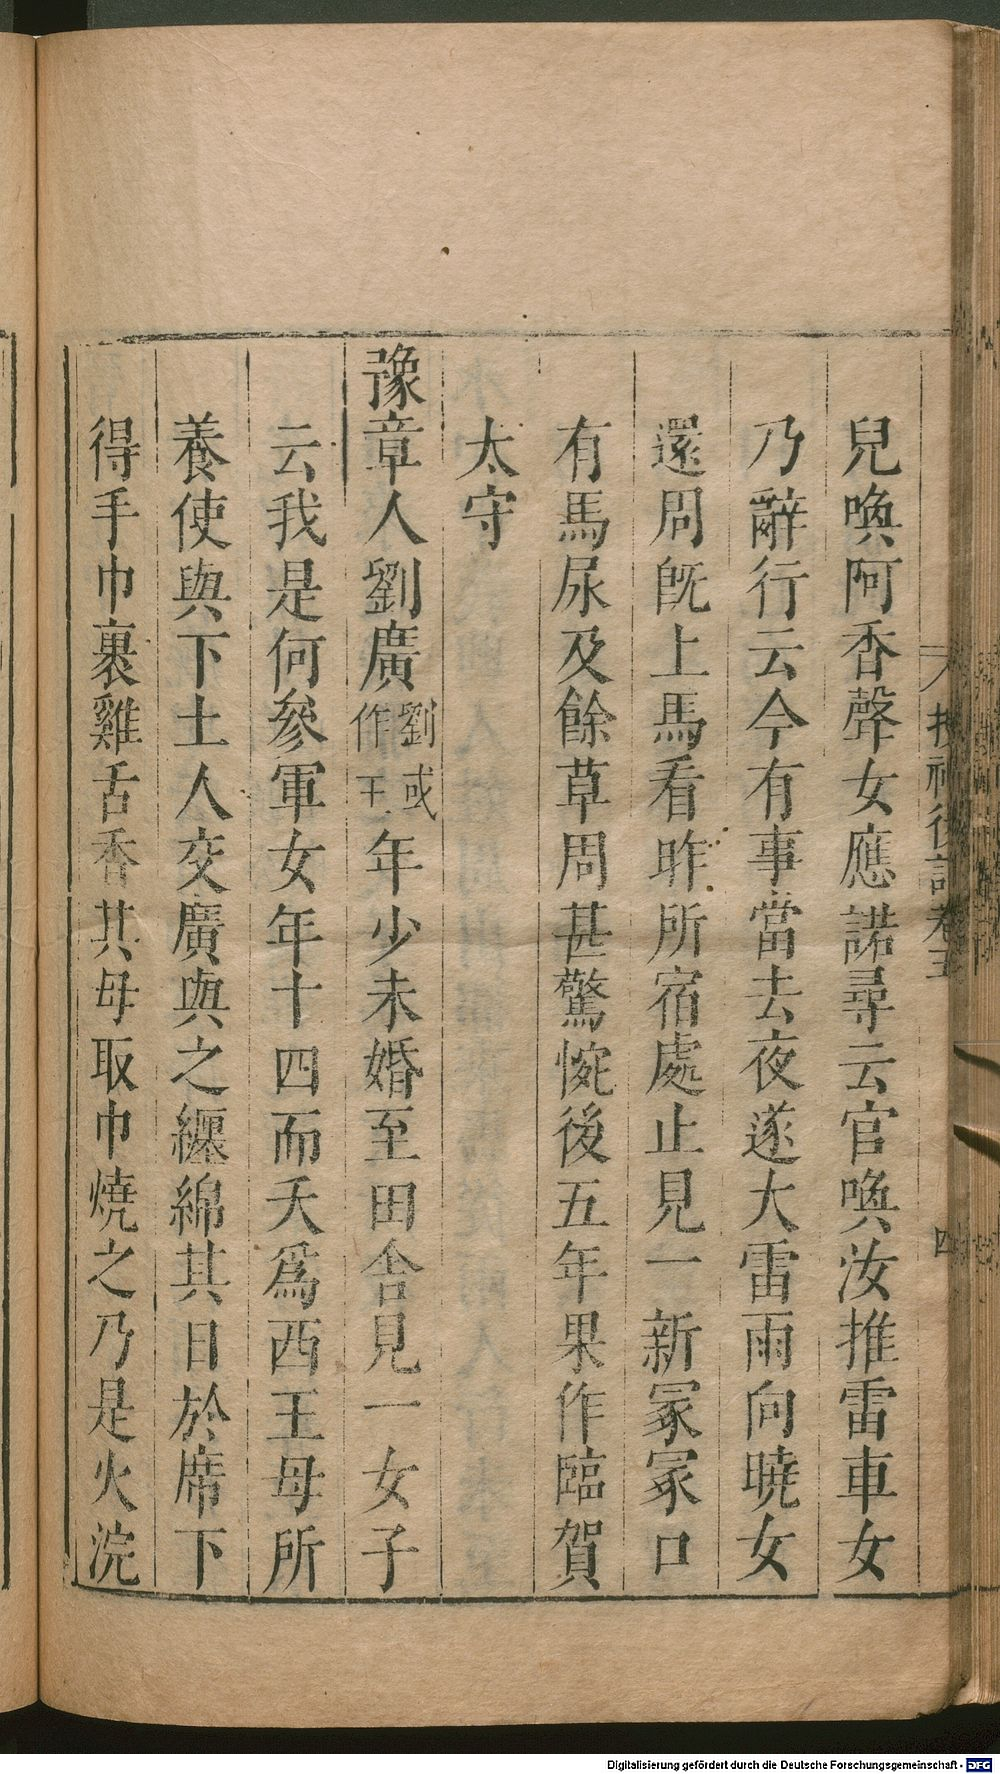 兒喚阿香聲女應諾尋云官喚汝推雷車女
乃辭行云今有事當去夜遂大雷雨向曉女
還周旣上馬看昨所宿處止見一新冢冢口
有馬尿及餘草周甚驚惋後五年果作臨賀
太守
豫章人劉廣劉或作王年少未婚至田舍見一女子
云我是何參軍女年十四而夭爲西王母所
養使與下土人交廣與之纏綿其日於席下
得手巾裹雞舌香其母取巾燒之乃是火浣
搜神後記卷五
四
Digitalisierung gefördert durch die Deutsche Forschungsgemeinschaft - DFG